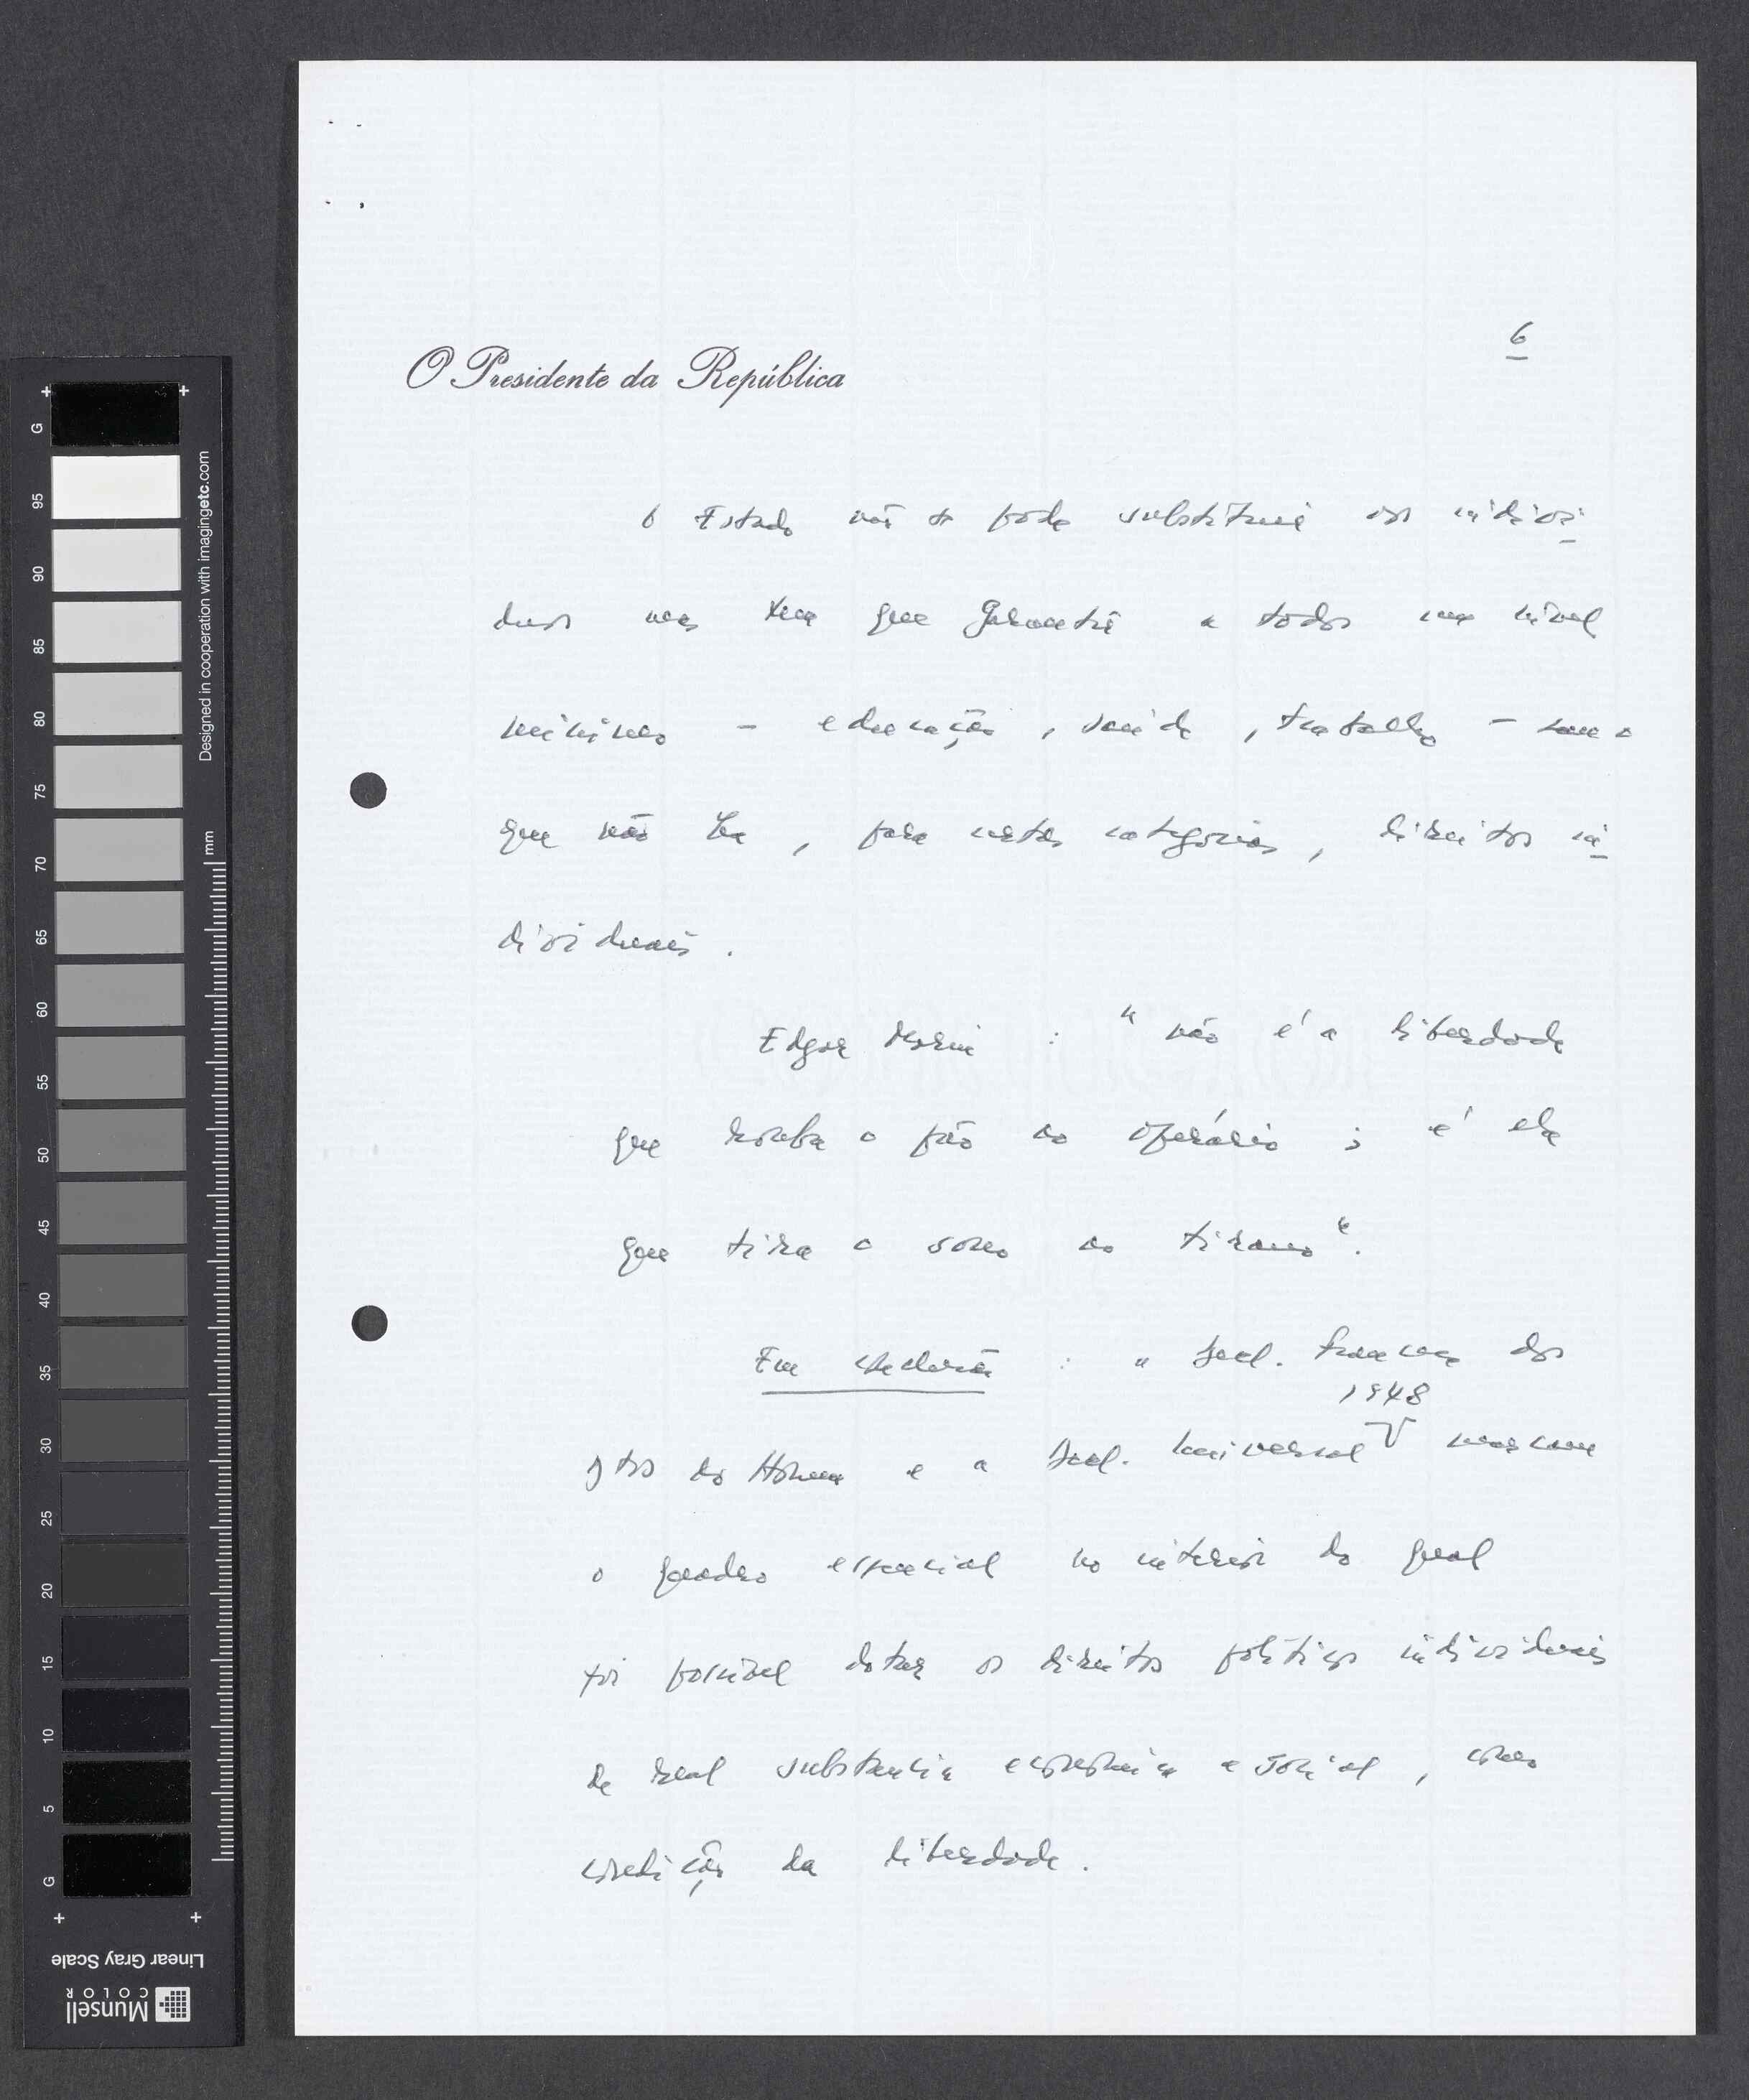 6
O Presidente da República
O Estado não se pode substituir aos indiví
duos mas tem que garantir a todos um nível
mínimo - educação, saúde, trabalho - sem o
que não há, para certas categorias, direitos in
dividuais.
Edgar Morin : " não é a liberdade
que rouba o pão ao operário ; é ela
que tira o sono ao tirano ".
Em conclusão : " Decl. francesa dos
Dtos do Homem e a Decl. Universal marcam
1948
o quadro essencial no interior do qual
foi possível dotar os direitos políticos individuais
de real substancia económica e social, como
condição da liberdade.
G
95
90
85
80
75
70
65
60
55
50
45
40
35
30
25
20
15
10
5
G
mm
Designed in cooperation with imagingetc.com
Linear Gray Scale
Munsell
COLOR